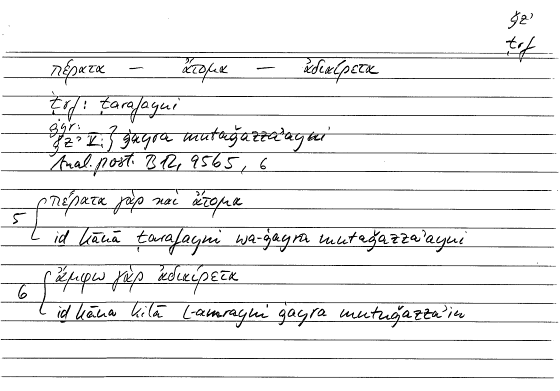 ǧzʾ
ṭrf
πέρατα — ἄτομα — ἀδιαίρετα
ṭrf: ṭarafayni
ġyr:
ǧzʾ V: } ġayra mutaǧazzaʾayni
Anal. post. B12, 95b5, 6
5 { πέρατα γὰρ καὶ ἄτομα
iḏ kānā ṭarafayni wa-ġayra mutaǧazzaʾayni
6 { ἄμφω γὰρ ἀδιαίρετα
iḏ kāna kilā l-amrayni ġayra mutaǧazzaʾin